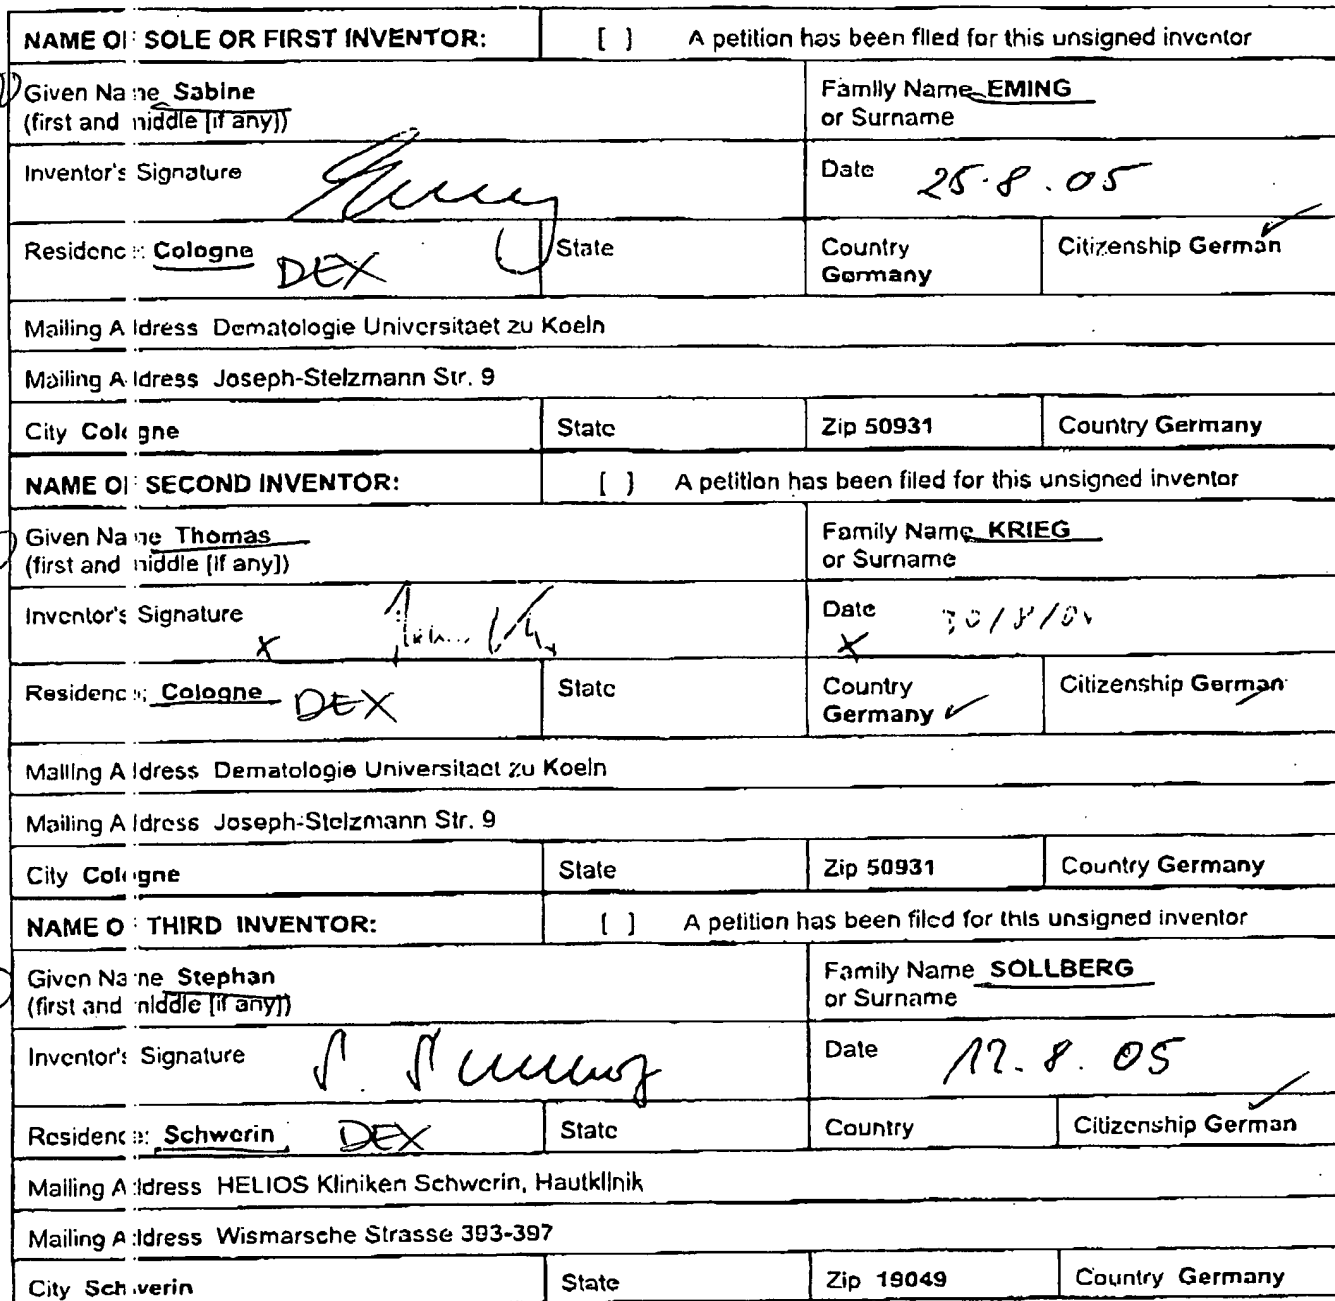 NAME OF SOLE OR FIRST INVENTOR: [ ] A petition has been filed for this unsigned inventor
Given Name Sabine Family Name EMING
(first and middle [if any]) or Surname
Inventor's Signature Date 25.8.05
Residence: Cologne DEX State Country Citizenship German
Germany
Mailing Address Dematologie Universitaet zu Koeln
Mailing Address Joseph-Stelzmann Str. 9
City Cologne State Zip 50931 Country Germany
NAME OF SECOND INVENTOR: [ ] A petition has been filed for this unsigned inventor
Given Name Thomas Family Name KRIEG
(first and middle [if any]) or Surname
Inventor's Signature X Date X
Residence: Cologne DEX State Country Citizenship German
Germany
Mailing Address Dematologie Universitaet zu Koeln
Mailing Address Joseph-Stelzmann Str. 9
City Cologne State Zip 50931 Country Germany
NAME OF THIRD INVENTOR: [ ] A petition has been filed for this unsigned inventor
Given Name Stephan Family Name SOLLBERG
(first and middle [if any]) or Surname
Inventor's Signature Date 12.8.05
Residence: Schwerin DEX State Country Citizenship German
Mailing Address HELIOS Kliniken Schwerin, Hautklinik
Mailing Address Wismarsche Strasse 393-397
City Schwerin State Zip 19049 Country Germany